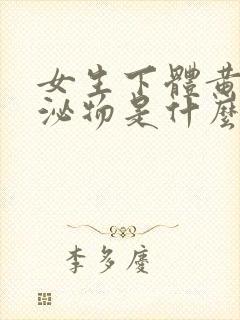 女生下體黃
泌物是什麼
李多慶